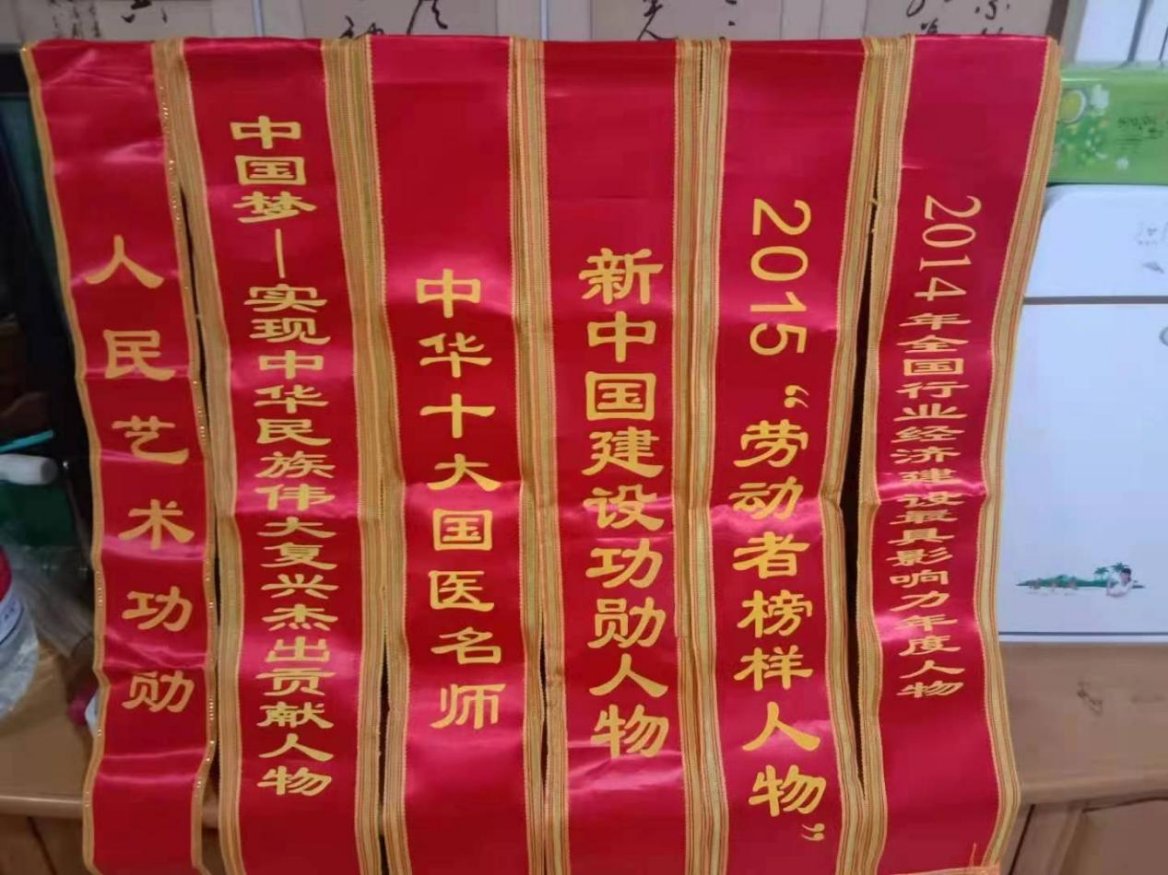 人民艺术功勋
中国梦—实现中华民族伟大复兴杰出贡献人物
中华十大国医名师
新中国建设功勋人物
2015“劳动者榜样人物”
2014年全国行业经济建设最具影响力年度人物